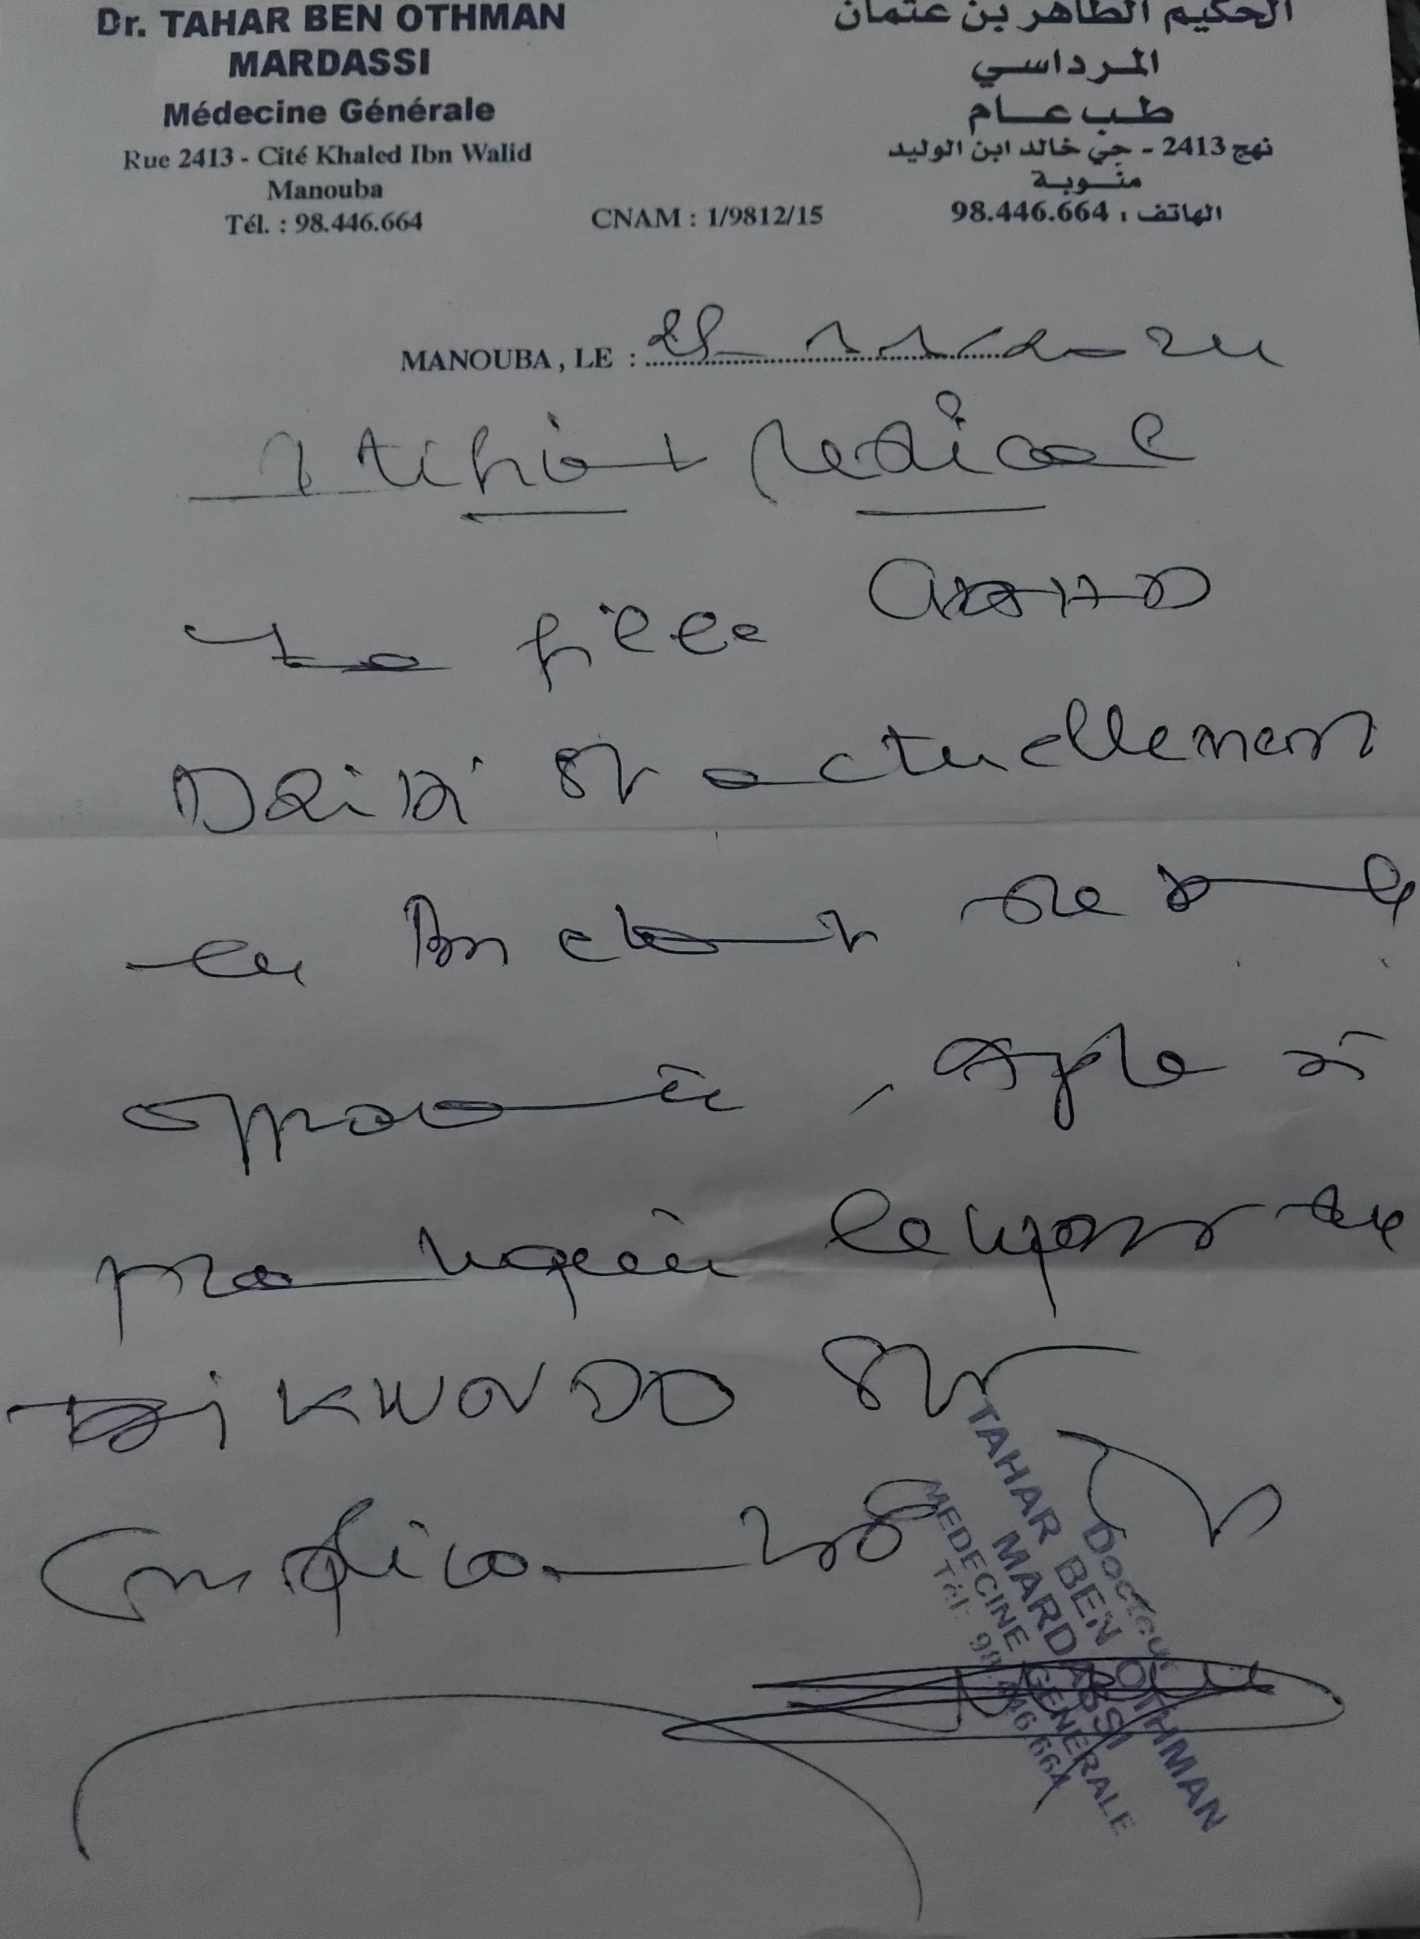 Dr. TAHAR BEN OTHMAN
MARDASSI
Médecine Générale
Rue 2413 - Cité Khaled Ibn Walid
Manouba
Tél. : 98.446.664
CNAM : 1/9812/15
الحكيم الطاهر بن عثمان
المرداسي
طب عام
نهج 2413 - حي خالد ابن الوليد
منوبة
الهاتف : 98.446.664
MANOUBA, LE :
Medical
La fille
Dridi est actuellement
en bon etat de
apparente, apte à
pratiquer le sport de
TAIKWONDO
Docteur
TAHAR BEN OTHMAN
MARDASSI
MEDECINE GENERALE
Tél: 98 446 664